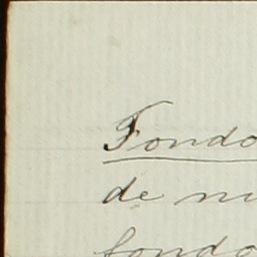 Fondo
de nu
fondo